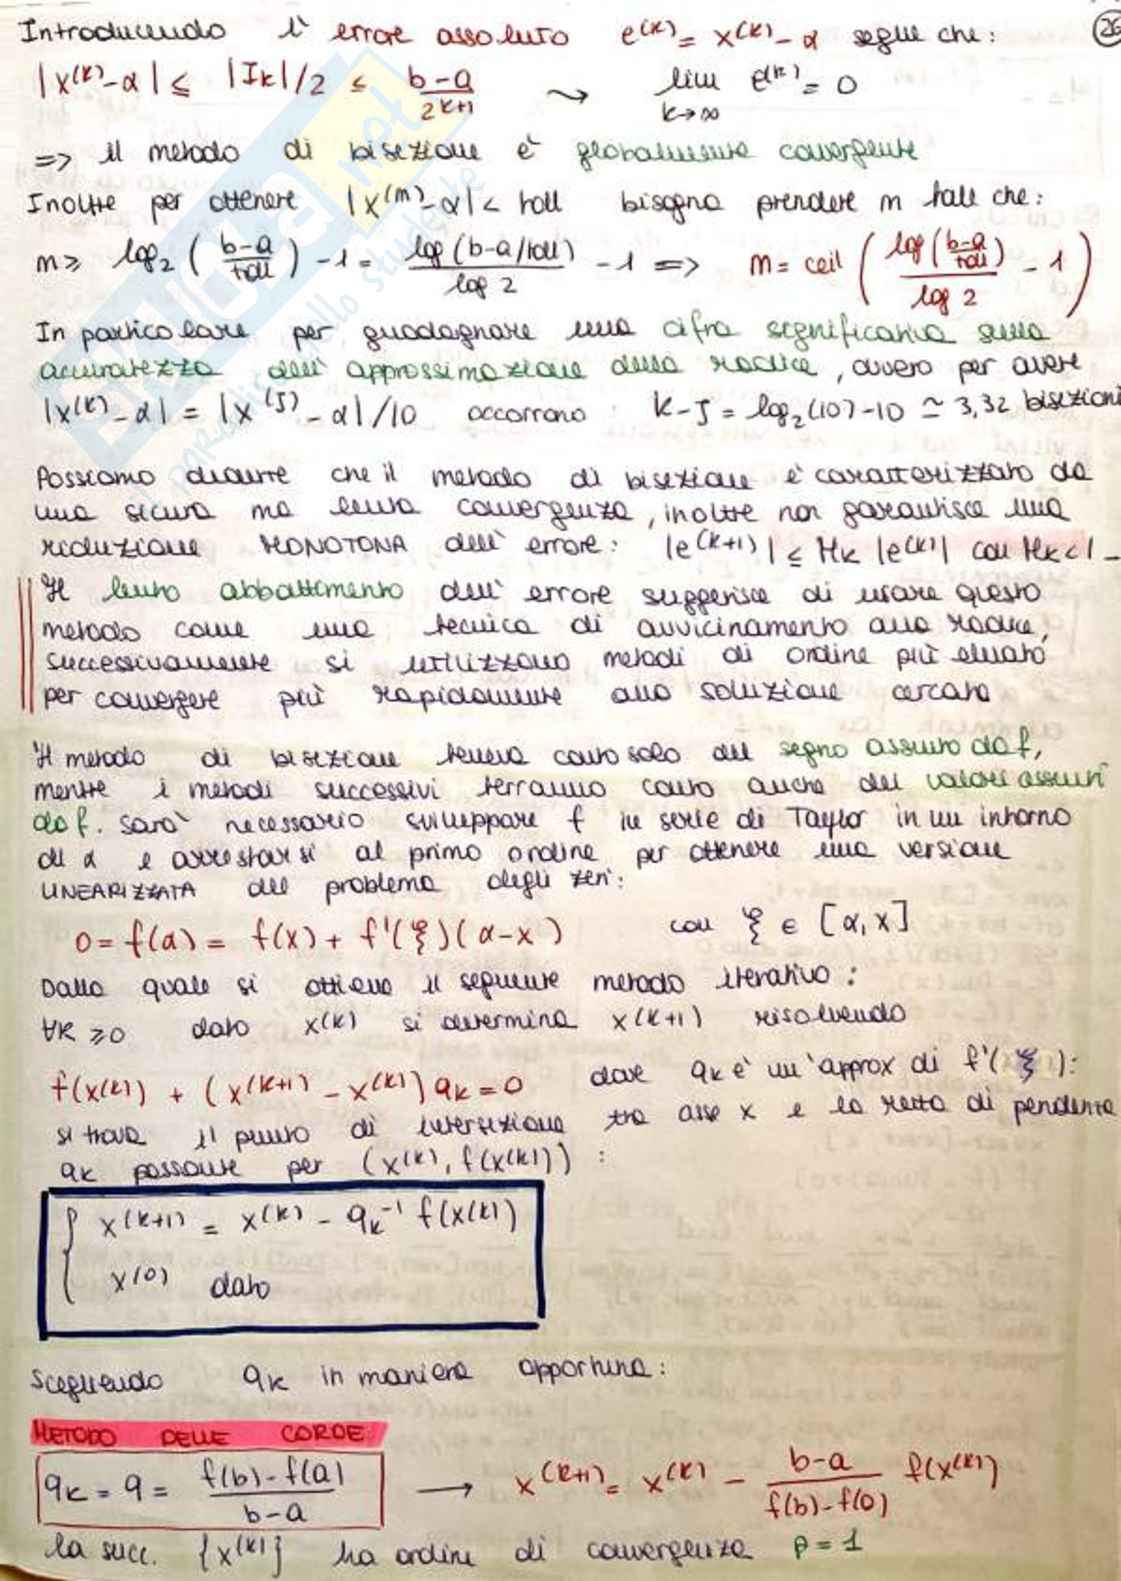 26
Introducendo l'errore assoluto e^(k) = x^(k) - α segue che:
|x^(k) - α| ≤ |Ik|/2 ≤ (b-a)/2^(k+1) ⤳ lim_{k→∞} e^(k) = 0
=> il metodo di bisezione è globalmente convergente
Inoltre per ottenere |x^(m) - α| < toll bisogna prendere m tale che:
m ≥ log₂((b-a)/toll) - 1 = log(b-a/toll)/log 2 - 1 => m = ceil(log((b-a)/toll)/log 2 - 1)
In particolare per guadagnare una cifra significativa sulla
accuratezza dell'approssimazione della radice, ovvero per avere
|x^(k) - α| = |x^(J) - α|/10 occorrono: k-J = log₂(10)-10 ≃ 3,32 bisezioni
Possiamo dedurre che il metodo di bisezione è caratterizzato da
una sicura ma lenta convergenza, inoltre non garantisce una
riduzione MONOTONA dell'errore: |e^(k+1)| ≤ Mk |e^(k)| con Mk<1
Il lento abbattimento dell'errore suggerisce di usare questo
metodo come una tecnica di avvicinamento alla radice,
successivamente si utilizzano metodi di ordine più elevato
per convergere più rapidamente alla soluzione cercata
Il metodo di bisezione teneva conto solo del segno assunto da f,
mentre i metodi successivi terranno conto anche dei valori assunti
da f. Sarà necessario sviluppare f in serie di Taylor in un intorno
di α e arrestarsi al primo ordine per ottenere una versione
LINEARIZZATA del problema degli zeri:
0 = f(α) = f(x) + f'(ξ)(α-x) con ξ ∈ [α,x]
Dalla quale si ottiene il seguente metodo iterativo:
∀k ≥ 0 dato x^(k) si determina x^(k+1) risolvendo
f(x^(k)) + (x^(k+1) - x^(k)) qk = 0 dove qk è un'approx di f'(ξ):
si trova il punto di intersezione tra asse x e la retta di pendenza
qk passante per (x^(k), f(x^(k))):
{ x^(k+1) = x^(k) - qk^-1 f(x^(k))
x^(0) dato
scegliendo qk in maniera opportuna:
METODO DELLE CORDE
qk = q = (f(b)-f(a))/(b-a) → x^(k+1) = x^(k) - (b-a)/(f(b)-f(a)) f(x^(k))
la succ. {x^(k)} ha ordine di convergenza p = 1